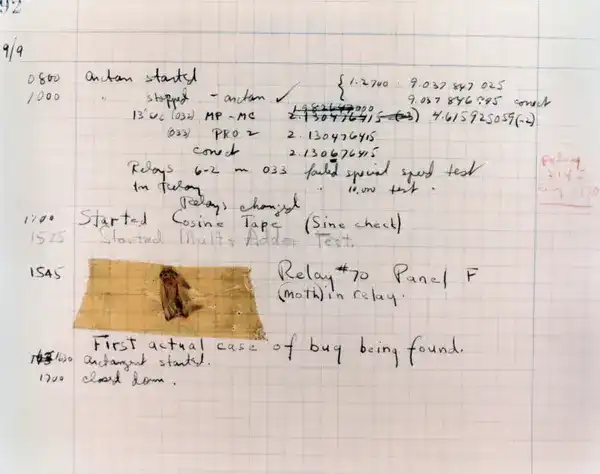 92
9/9
0800 arctan started { 1.2700 9.037 847 025
1000 " stopped - arctan ✓ 9.037 846 995 correct
13" UC (032) MP - MC 2.130476415 (-3) 4.615925059 (-2)
(033) PRO 2 2.130476415
correct 2.130676415
Relays 6-2 in 033 failed special speed test
in Relay " 10.000 test .
Relays changed
1100 Started Cosine Tape (Sine check)
1525 Started Mult + Adder Test.
1545 Relay #70 Panel F
(Moth) in relay.
First actual case of bug being found.
1630 arctangent started.
1700 closed down .
Relay